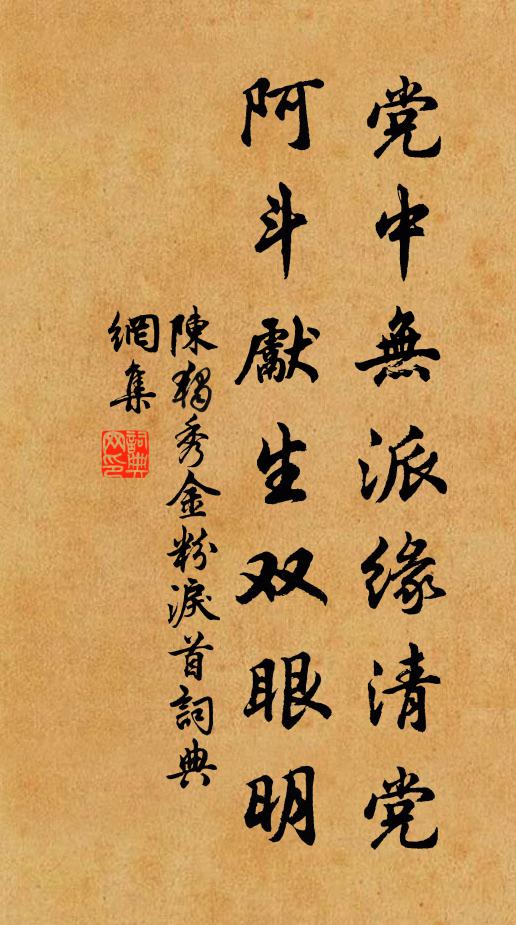 党中無派緣清党
阿斗獻生双眼明
陳獨秀金粉淚首詞典
網集
詞典
网印